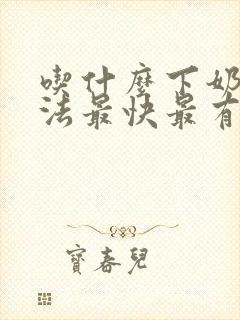 喫什麼下奶
法最快最有
寶春兒